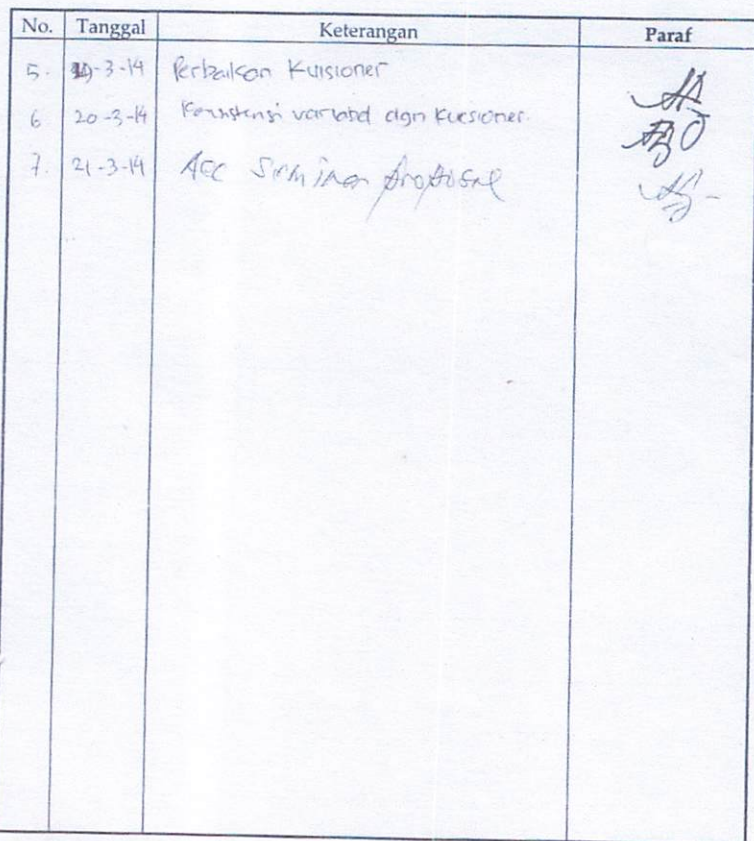 No. Tanggal Keterangan Paraf
5. 19-3-14 Perbaikan Kuisioner
6 20-3-14 Konsistensi variabel dgn Kuesioner.
7. 21-3-14 ACC Seminar proposal